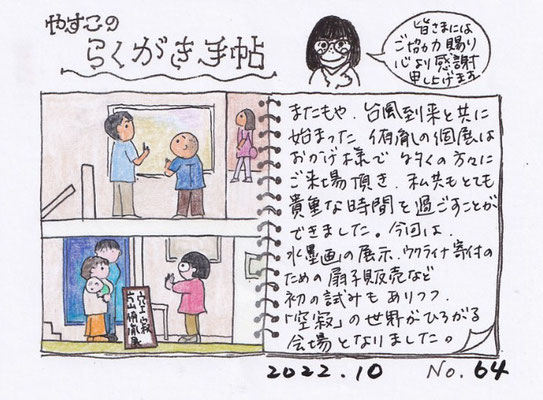 やすこの
らくがき手帖
皆さまには
ご協力賜り
心より感謝
申し上げます
またもや、台風到来と共に
始まった 俯胤しの個展は
おかげ様で 多くの方々に
ご来場頂き、私共もとても
貴重な時間を過ごすことが
できました。今回は、
水墨画の展示、ウクライナ寄付の
ための扇子販売など
初の試みもありつつ、
「空寂」の世界がひろがる
会場となりました。
2022.10 No.64